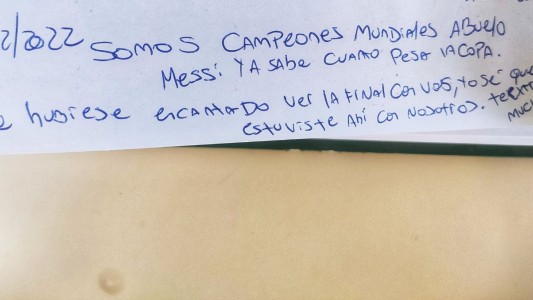 2/2022 SOMOS CAMPEONES MUNDIALES ABUELO
Messi YA SABE CUANTO PESA LA COPA.
hubiese encantado ver LA FINAL CON VOS, YO SÉ que
estuviste Ahí con nosotros.